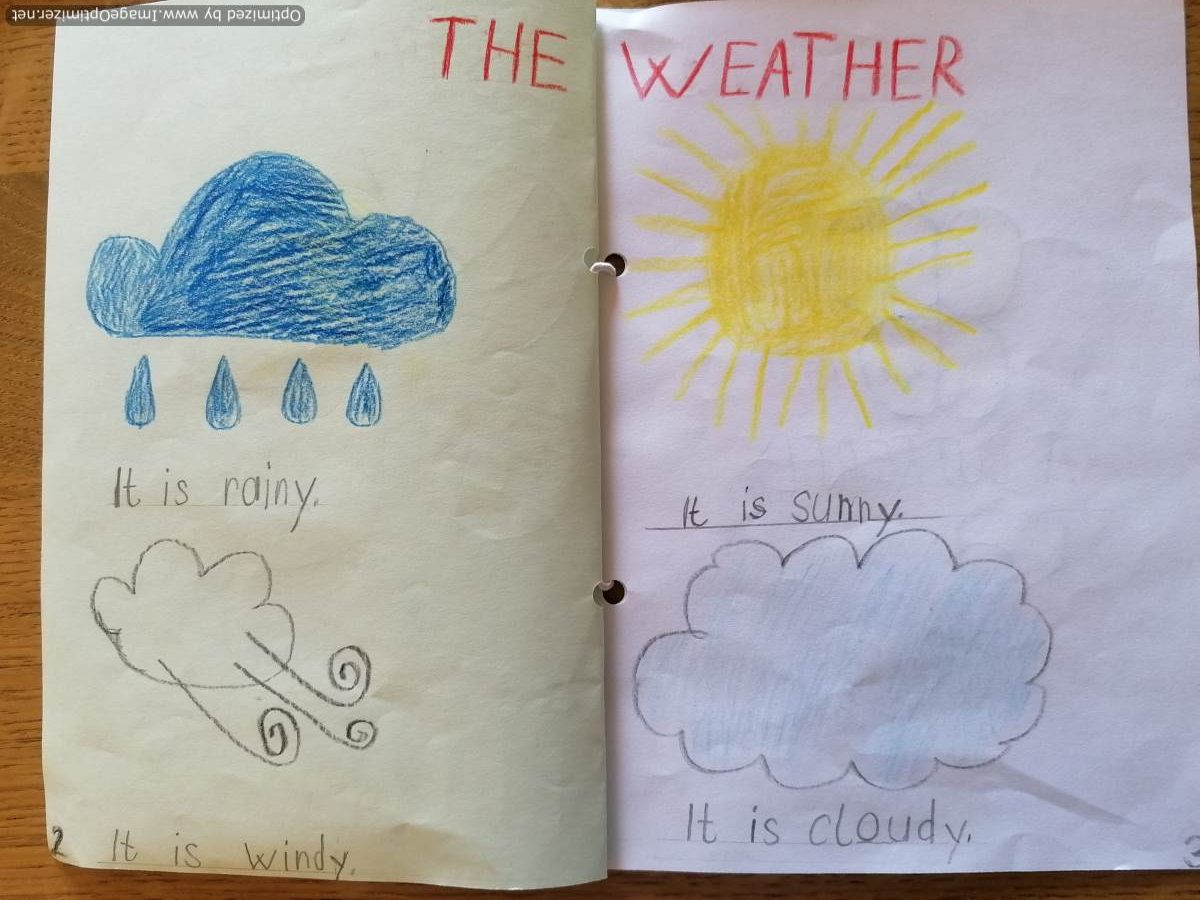 Optimized by www.ImageOptimizer.net
THE WEATHER
It is rainy.
It is windy.
2
It is sunny.
It is cloudy.
3